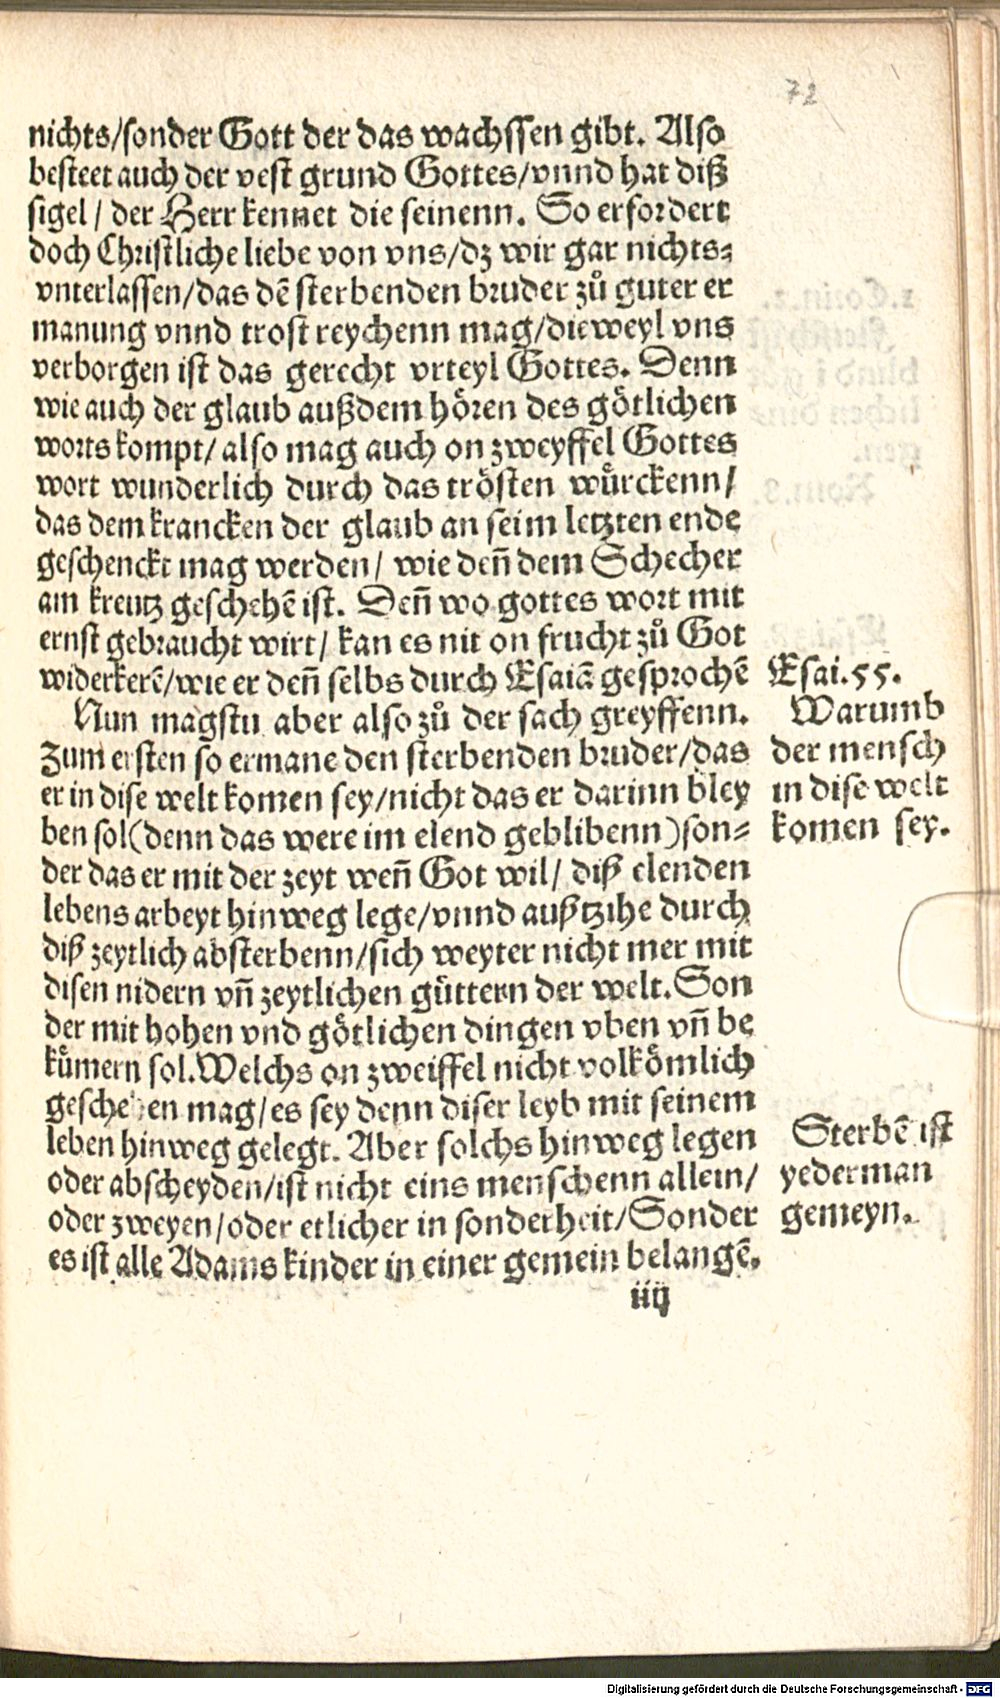 72
nichts/sonder Gott der das wachssen gibt. Also
besteet auch der vest grund Gottes/vnnd hat diß
sigel / der Herr kennet die seinenn. So erfordert
doch Christliche liebe von vns/dz wir gar nichts⸗
vnterlassen/das dē sterbenden bruder zů guter er
manung vnnd trost reychenn mag/dieweyl vns
verborgen ist das gerecht vrteyl Gottes. Denn
wie auch der glaub außdem hören des götlichen
worts kompt/ also mag auch on zweyffel Gottes
wort wunderlich durch das trösten würckenn/
das dem krancken der glaub an seim letzten ende
geschenckt mag werden/ wie den̄ dem Schecher
am kreutz geschehē ist. Den̄ wo gottes wort mit
ernst gebraucht wirt/ kan es nit on frucht zů Got
widerkerē/wie er den̄ selbs durch Esaiā gesprochē
Esai.55.
Nun magstu aber also zů der sach greyffenn.
Zum ersten so ermane den sterbenden bruder/das
er in dise welt komen sey/nicht das er darinn bley
ben sol(denn das were im elend geblibenn)son⸗
der das er mit der zeyt wen̄ Got wil/ diß elenden
lebens arbeyt hinweg lege/vnnd außtzihe durch
diß zeytlich absterbenn/sich weyter nicht mer mit
disen nidern vn̄ zeytlichen güttern der welt. Son
der mit hohen vnd götlichen dingen vben vn̄ be
kümern sol. Welchs on zweiffel nicht volkömlich
geschehen mag/es sey denn diser leyb mit seinem
leben hinweg gelegt. Aber solchs hinweg legen
oder abscheyden/ist nicht eins menschenn allein/
oder zweyen/oder etlicher in sonderheit/Sonder
es ist alle Adams kinder in einer gemein belangē.
Warumb
der mensch
in dise welt
komen sey.
Sterbē ist
yederman
gemeyn.
iiij
Digitalisierung gefördert durch die Deutsche Forschungsgemeinschaft - DFG